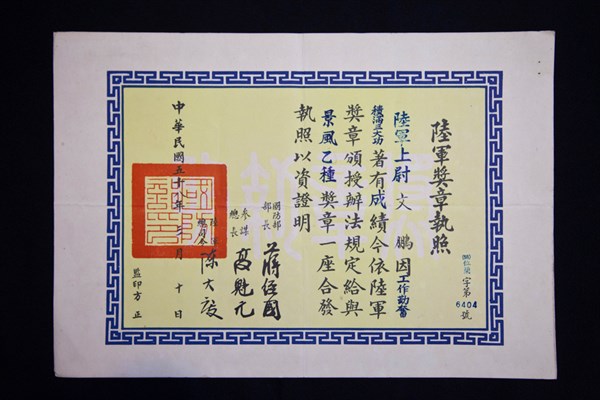 陸軍獎章執照
字第6404號
陸軍上尉文鵬因工作勤奮
著有成績今依陸軍
獎章頒授辦法規定給與
景風乙種獎章一座合發
執照以資證明
國防部部長 蔣經國
參謀總長 高魁元
陸軍總司令 陳大慶
中華民國五十年三月十日
監印方正